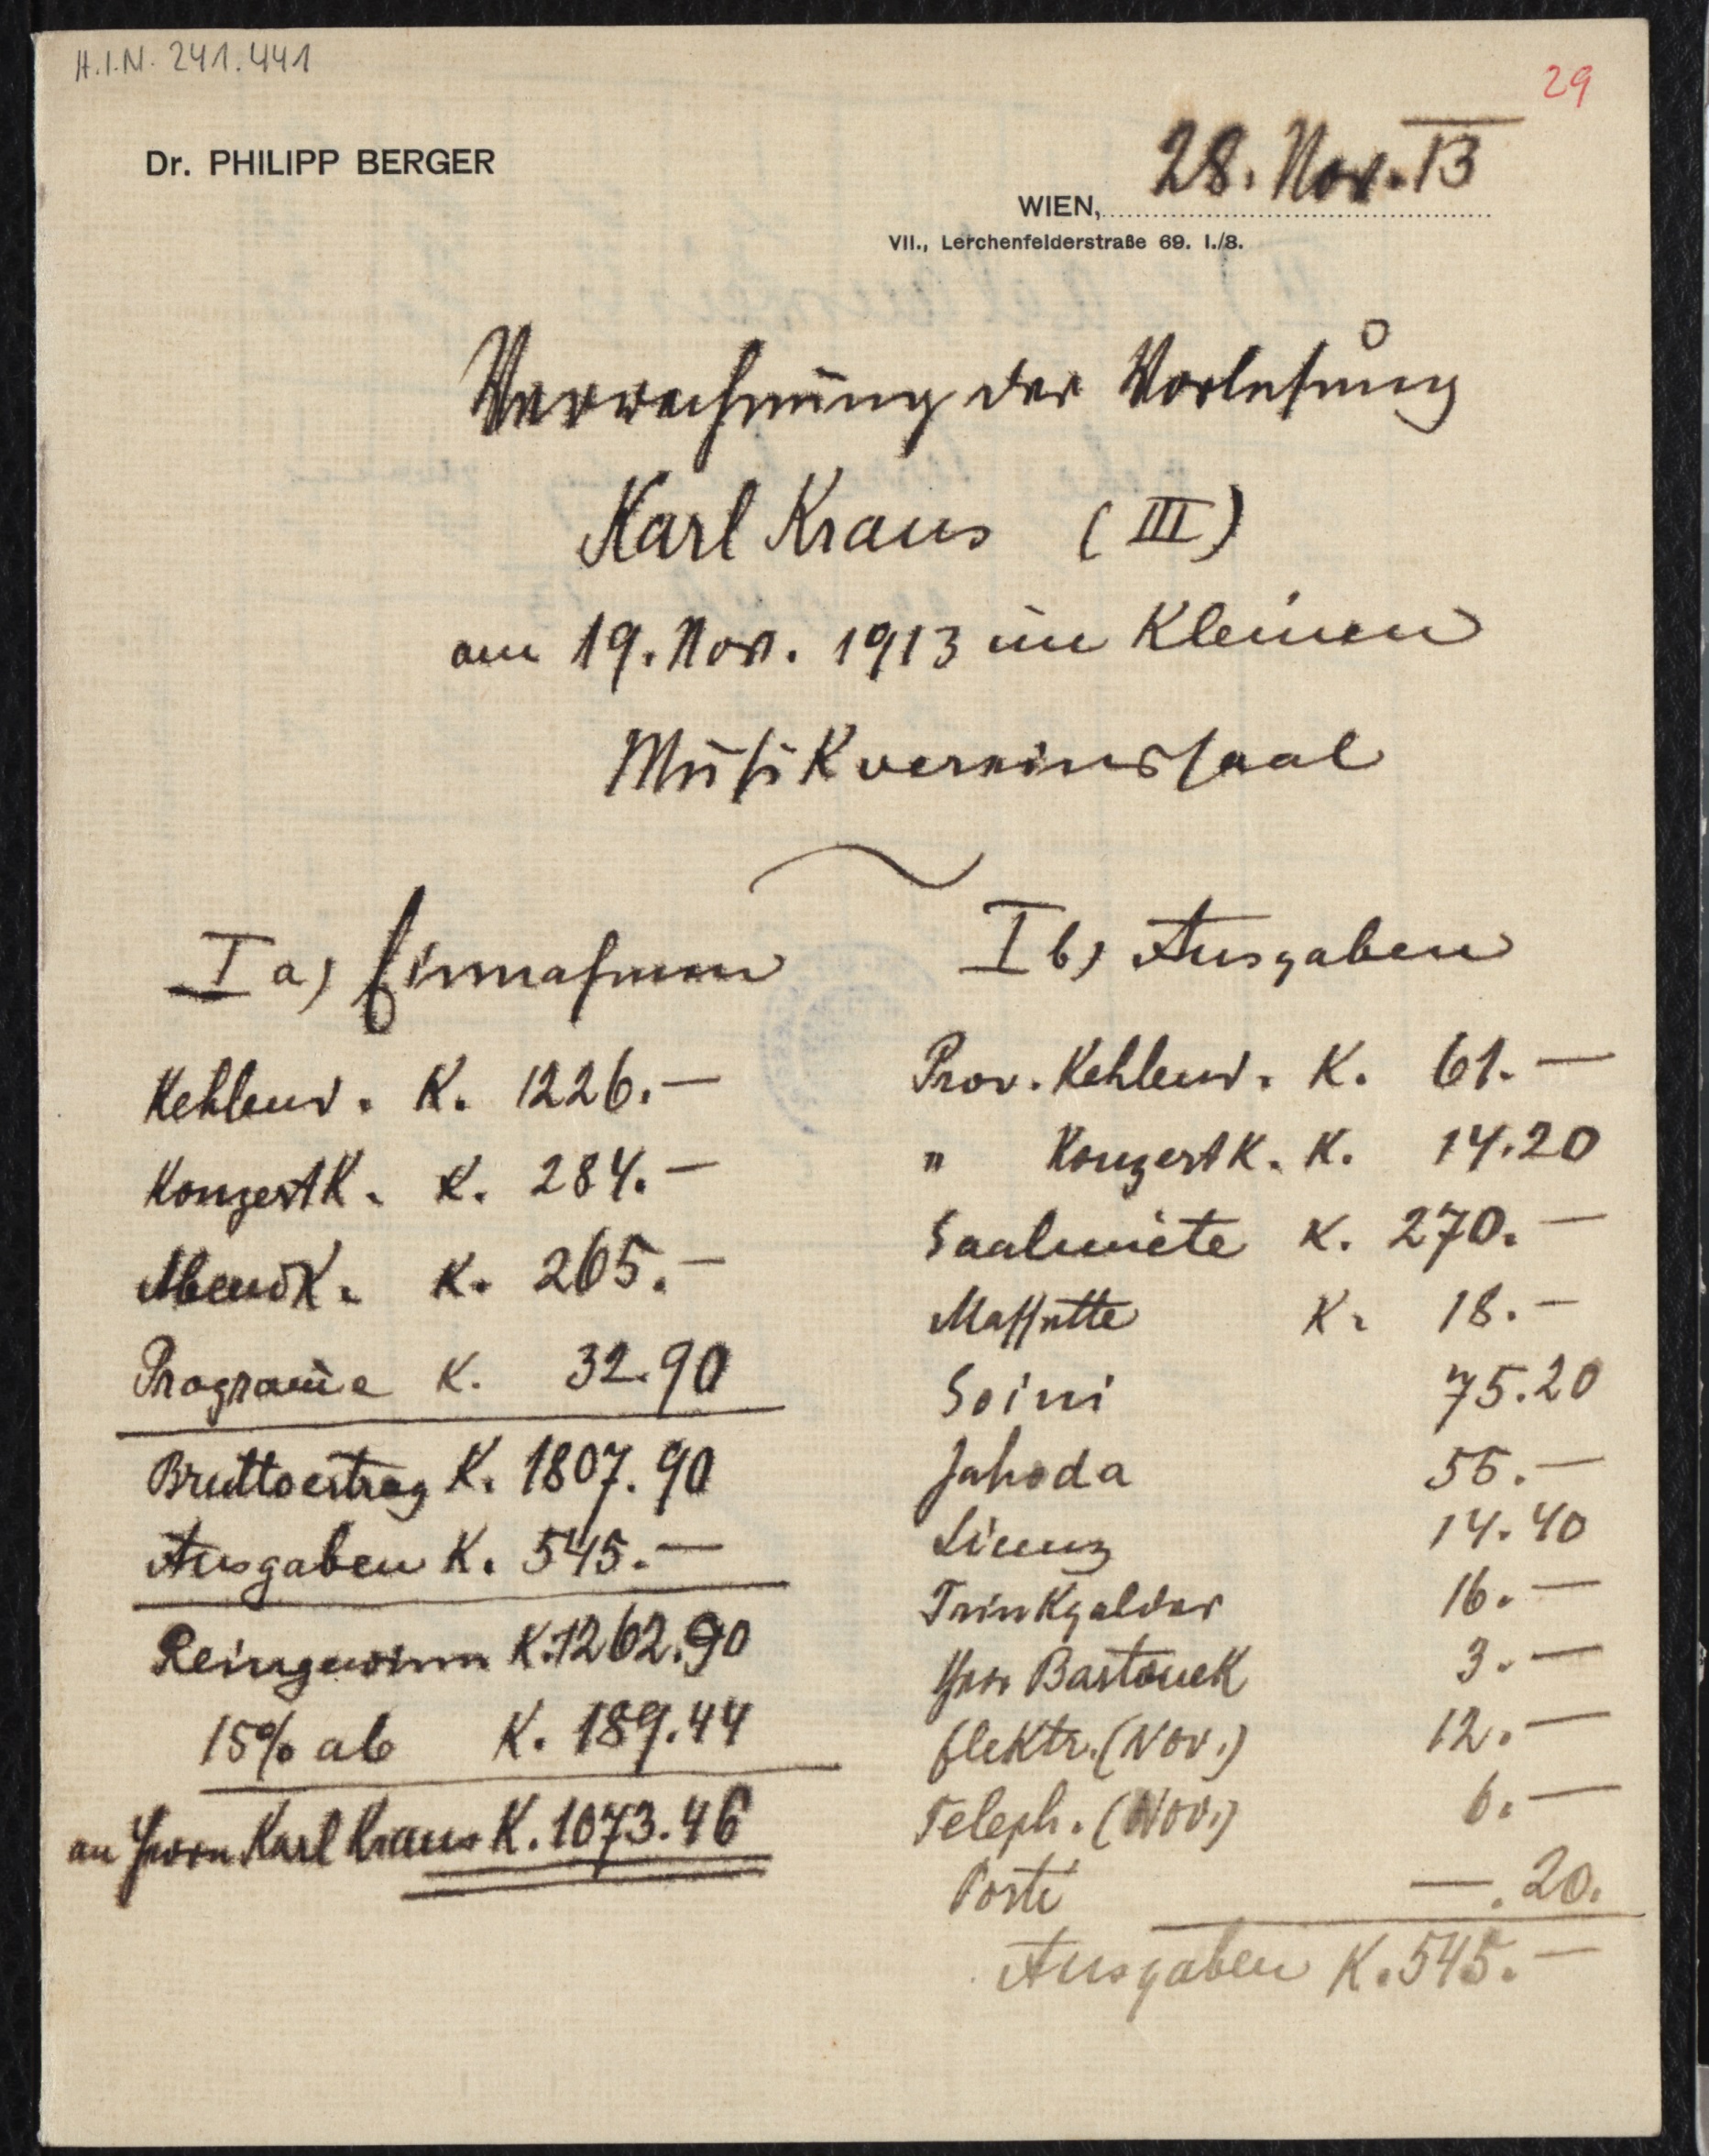 H.I.N. 241.441
29
Dr. PHILIPP BERGER
WIEN, 28. Nov. 13
VII., Lerchenfelderstraße 69. I./8.
Verrechnung der Vorlesung
Karl Kraus (III)
am 19. Nov. 1913 im Kleinen
Musikvereinssaal
I a) Einnahmen
Kehlend. K. 1226.—
Konzertk. K. 284.—
Abendk. K. 265.—
Programme K. 32.90
Bruttoertrag K. 1807.90
Ausgaben K. 545.—
Reingewinn K. 1262.90
15% ab K. 189.44
an Herrn Karl Kraus K. 1073.46
I b) Ausgaben
Prov. Kehlend. K. 61.—
" Konzertk. K. 14.20
Saalmiete K. 270.—
Massette K. 18.—
Soini 75.20
Jahoda 55.—
Licenz 14.40
Trinkgelder 16.—
Herr 3.—
Elektr. (Nov.) 12.—
Teleph. (Nov.) 6.—
Porti —.20.
Ausgaben K. 545.—